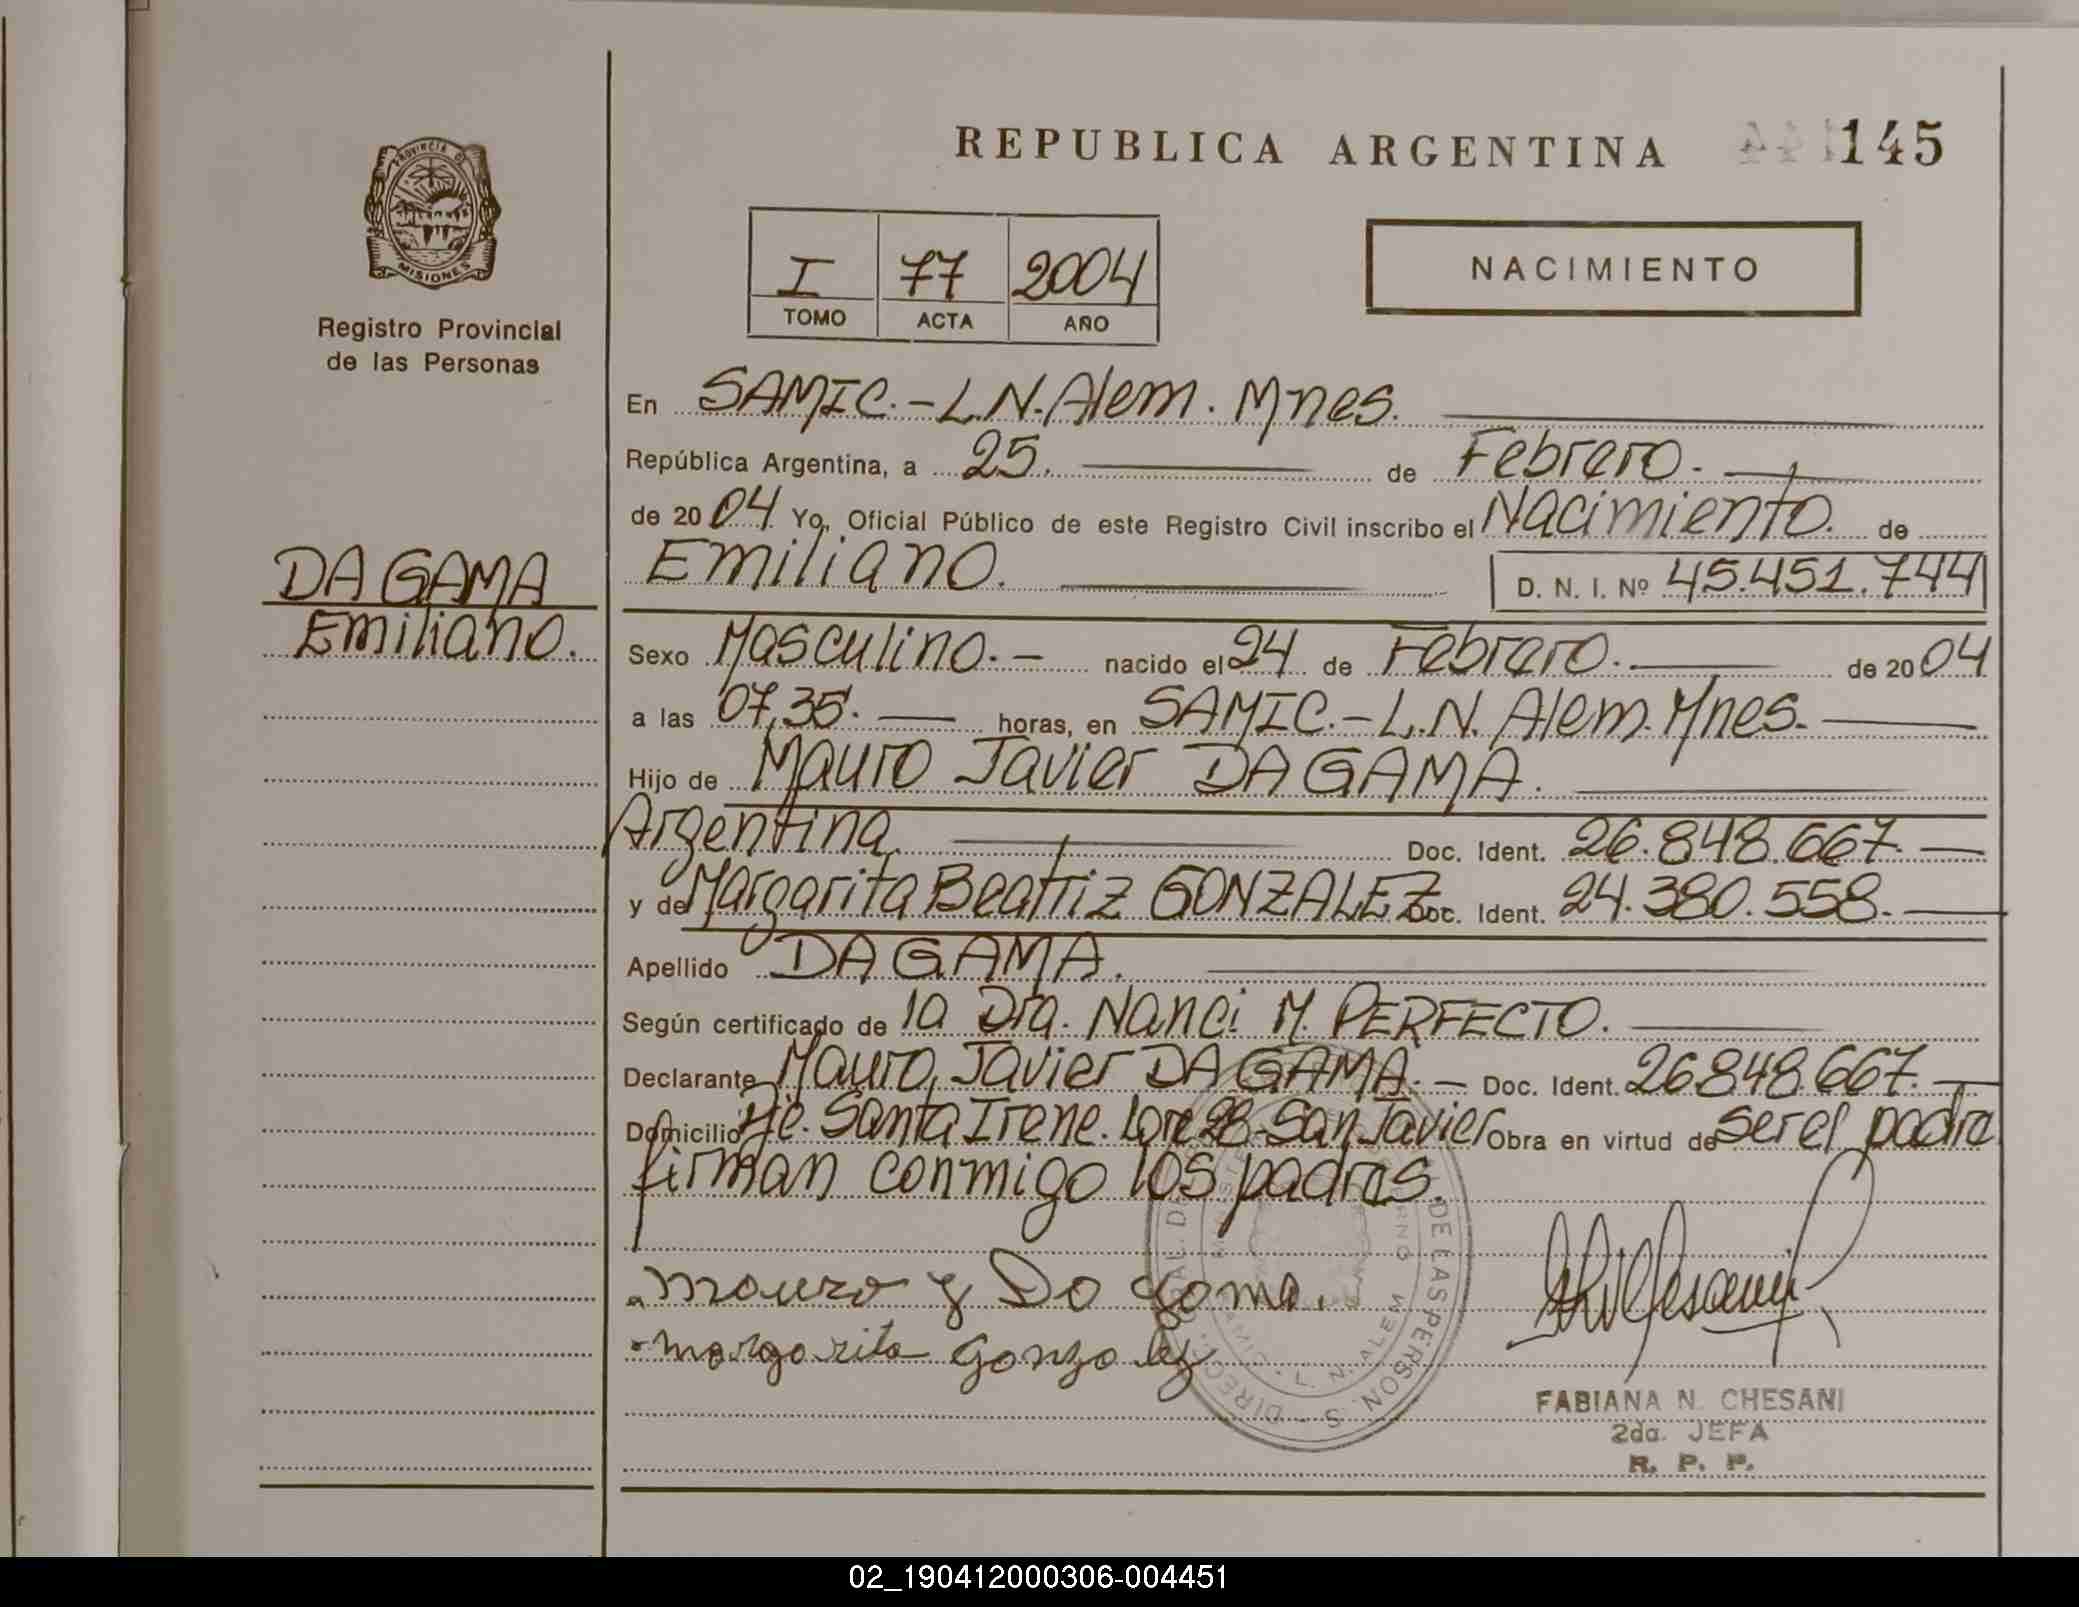 PROVINCIA DE
MISIONES
Registro Provincial
de las Personas
DA GAMA
Emiliano.
REPUBLICA ARGENTINA 145
I 77 2004
TOMO ACTA AÑO
NACIMIENTO
En SAMIC.-L.N.Alem. Mnes.
República Argentina, a 25. de Febrero.
de 2004 Yo, Oficial Público de este Registro Civil inscribo el Nacimiento. de
Emiliano. D. N. I. Nº 45.451.744
Sexo Masculino.- nacido el 24 de Febrero. de 2004
a las 07,35. horas, en SAMIC.-L.N. Alem.Mnes.
Hijo de Mauro Javier DA GAMA.
Argentina. Doc. Ident. 26.848.667.
y de Margarita Beatriz GONZALEZ Doc. Ident. 24.380.558.
Apellido DA GAMA.
Según certificado de la Dra. Nanci M. PERFECTO.
Declarante Mauro Javier DA GAMA.- Doc. Ident. 26.848.667.
Domicilio Santa Irene. 28-San Javier Obra en virtud de ser el padre
firman conmigo los padres.
Mauro y Da Gama.
Margarita Gonzalez
FABIANA N. CHESANI
2da. JEFA
R. P. P.
02_190412000306-004451